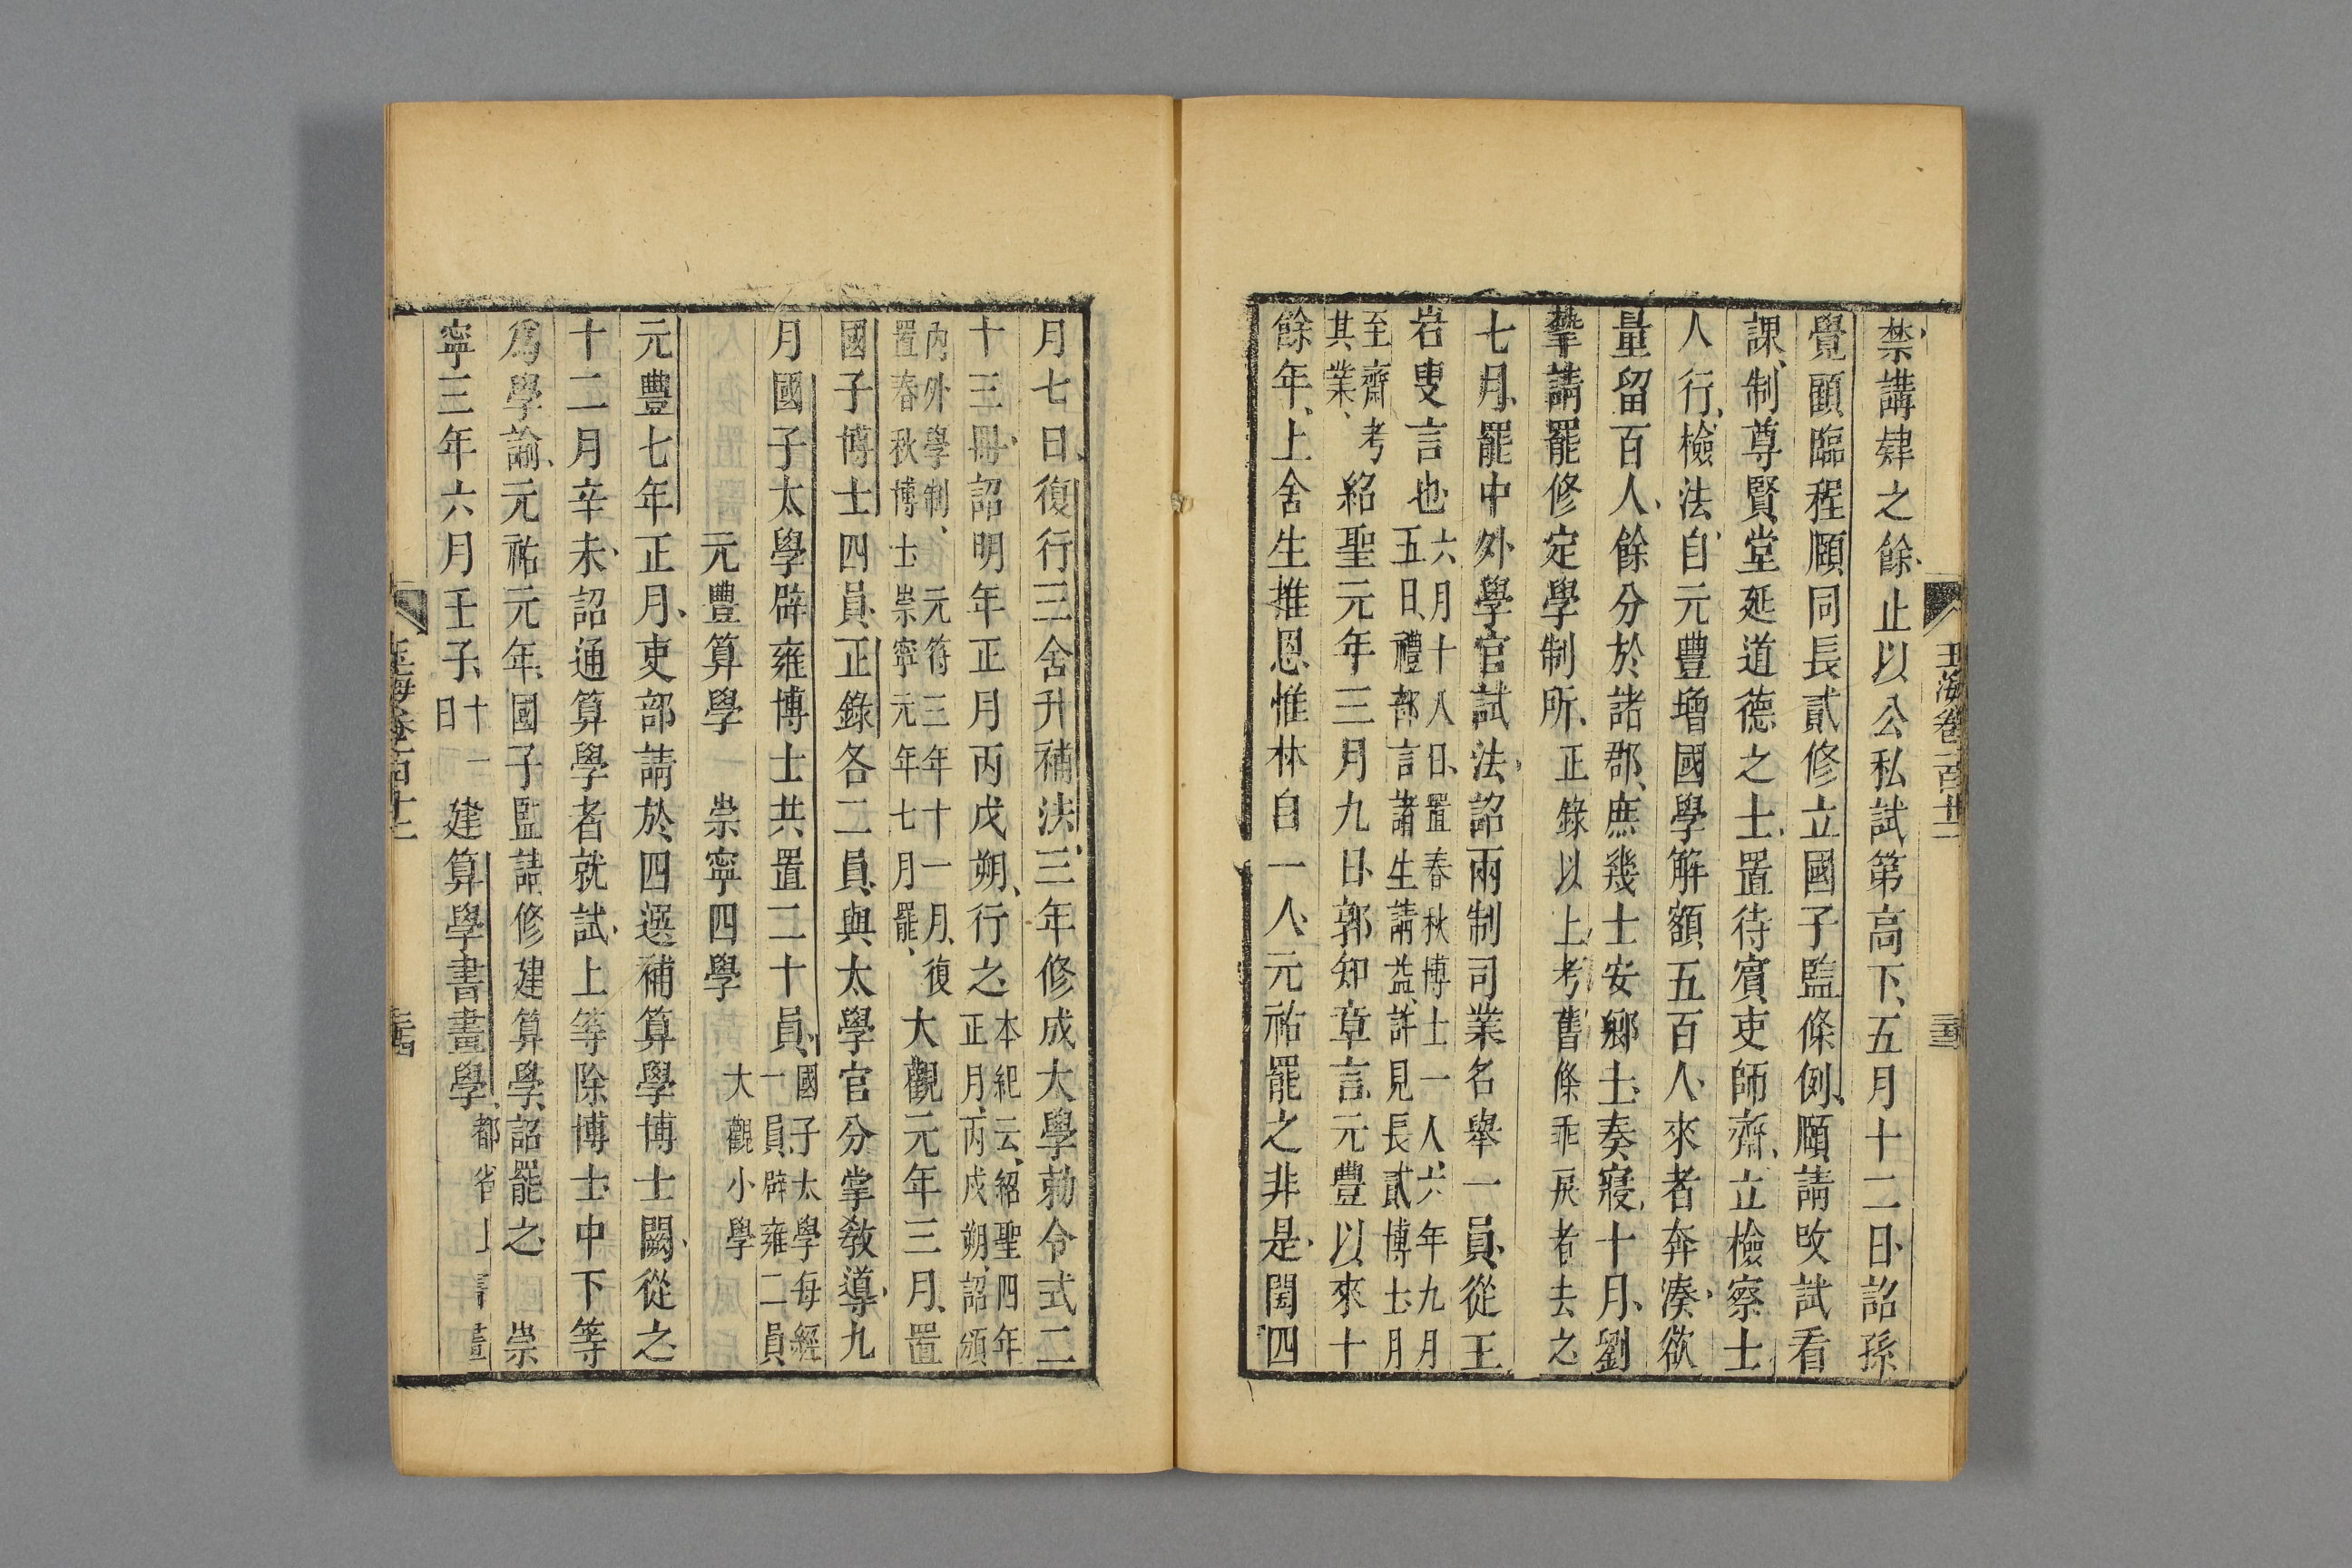 玉海卷一百十二
禁講肄之餘止以公私試第高下五月十二日詔孫
覺顧臨程頤同長貳修立國子監條例頤請改試看
課制尊賢堂延道德之士置待賓吏師齋立檢察士
人行檢法自元豐增國學解額五百人來者奔湊欲
量留百人餘分於諸郡庶幾士安鄉土奏寢十月劉
摯請罷修定學制所正錄以上考舊條乖戾者去之
七月罷中外學官試法詔兩制司業名舉一員從王
岩叟言也
六月十八日置春秋博士一人六年九月
五日禮部言諸生請益許見長貳博士月
至齋考
其業
紹聖元年三月九日郭知章言元豐以來十
餘年上舍生推恩惟林自一人元祐罷之非是閏四
月七日復行三舍升補法三年修成大學勅令式二
十三冊詔明年正月丙戌朔行之
本紀云紹聖四年
正月丙戌朔詔頒
內外學制元符三年十一月復
置春秋博士崇寧元年七月罷
大觀元年三月置
國子博士四員正錄各二員與太學官分掌教導九
月國子太學辟雍博士共置二十員
國子太學每經
一員辟雍二員
大觀小學
元豐算學 崇寧四學
元豐七年正月吏部請於四選補算學博士闕從之
十二月辛未詔通算學者就試上等除博士中下等
爲學諭元祐元年國子監請修建算學詔罷之 崇
寧三年六月壬子
十一
日
建算學書畫學
都省上書畫